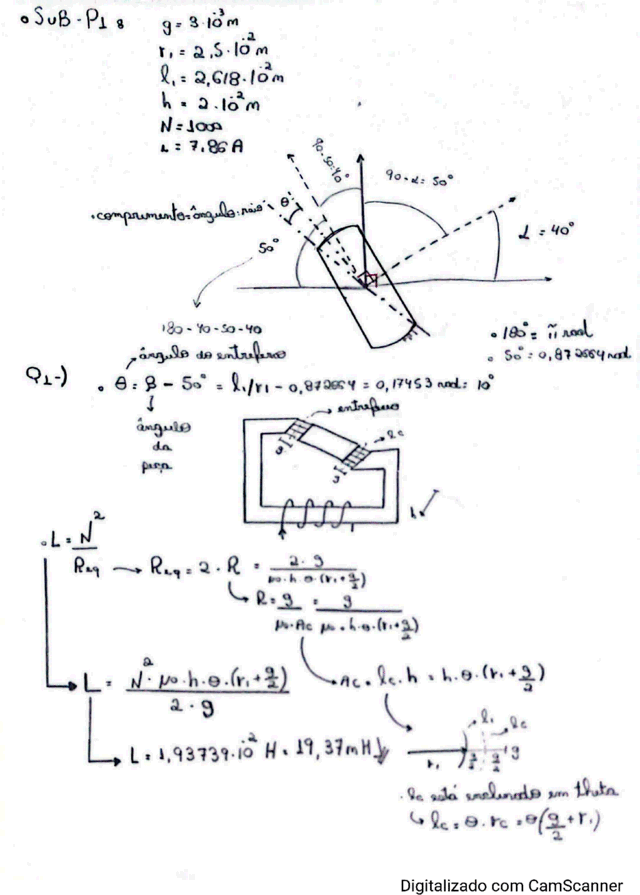 • SUB-P1 8
g = 3·10⁻³ m
r₁ = 2,5·10⁻² m
l₁ = 2,618·10⁻² m
h = 2·10⁻² m
N = 1000
i = 7,86 A
90-50=40°
90-α = 50°
• comprimento = ângulo·raio
θ
50°
α = 40°
180-40-50-40
• 180° = π rad
• 50° = 0,872664 rad
ângulo do entreferro
Q1-) • θ = β - 50° = l₁/r₁ - 0,872664 = 0,17453 rad = 10°
ângulo da peça
entreferro
lc
g
g
h
• L = N²/Req → Req = 2·R = 2·g/(μ₀·h·θ·(r₁+g/2))
R = g/(μ₀·Ac) = g/(μ₀·h·θ·(r₁+g/2))
L = N²·μ₀·h·θ·(r₁+g/2)/(2·g)
Ac = lc·h = h·θ·(r₁+g/2)
L = 1,93739·10⁻² H = 19,37 mH
l₁
lc
r₁ g/2 g/2 g
• lc está inclinado em theta
lc = θ·rc = θ(g/2+r₁)
Digitalizado com CamScanner